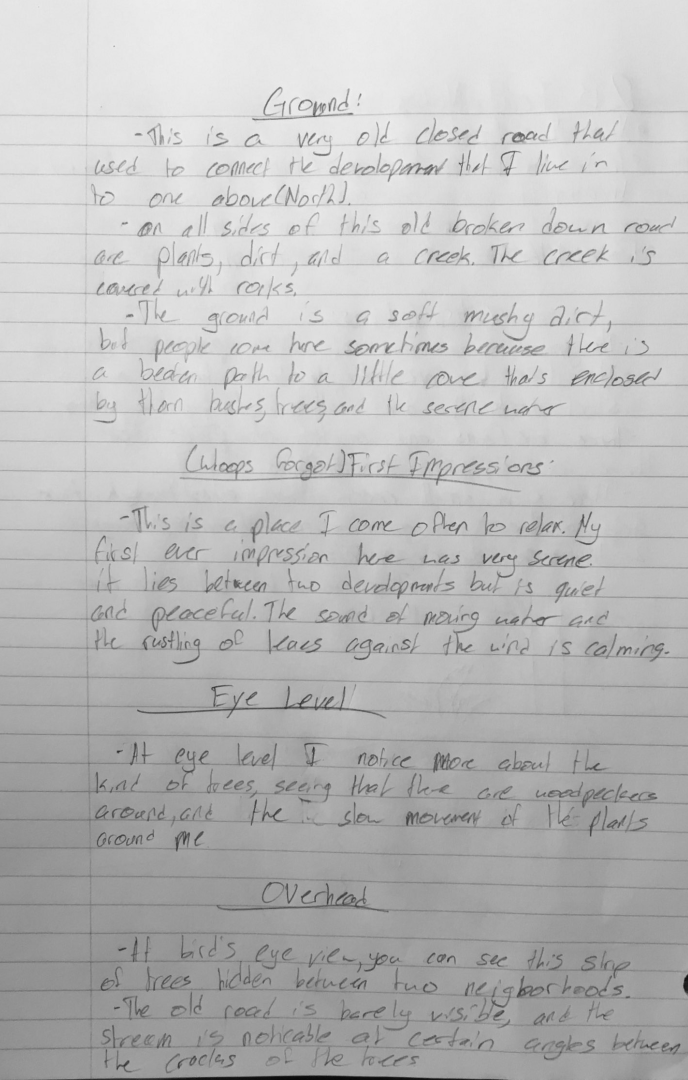 Ground:
-This is a very old closed road that
used to connect the development that I live in
to one above(North).
-on all sides of this old broken down road
are plants, dirt, and a creek. The creek is
covered with rocks.
-The ground is a soft mushy dirt,
but people come here sometimes because there is
a beaten path to a little cove thats enclosed
by thorn bushes, trees, and the serene water
(Whoops forgot) First Impressions
-This is a place I come often to relax. My
first ever impression here was very serene.
it lies between two developments but is quiet
and peaceful. The sound of moving water and
the rustling of leaes against the wind is calming.
Eye Level
-At eye level I notice more about the
kind of trees, seeing that there are woodpeckers
around, and the slow movement of the plants
around me
Overhead
-At bird's eye view, you can see this strip
of trees hidden between two neigborhoods.
-The old road is barely visible, and the
stream is noticable at certain angles between
the cracks of the trees